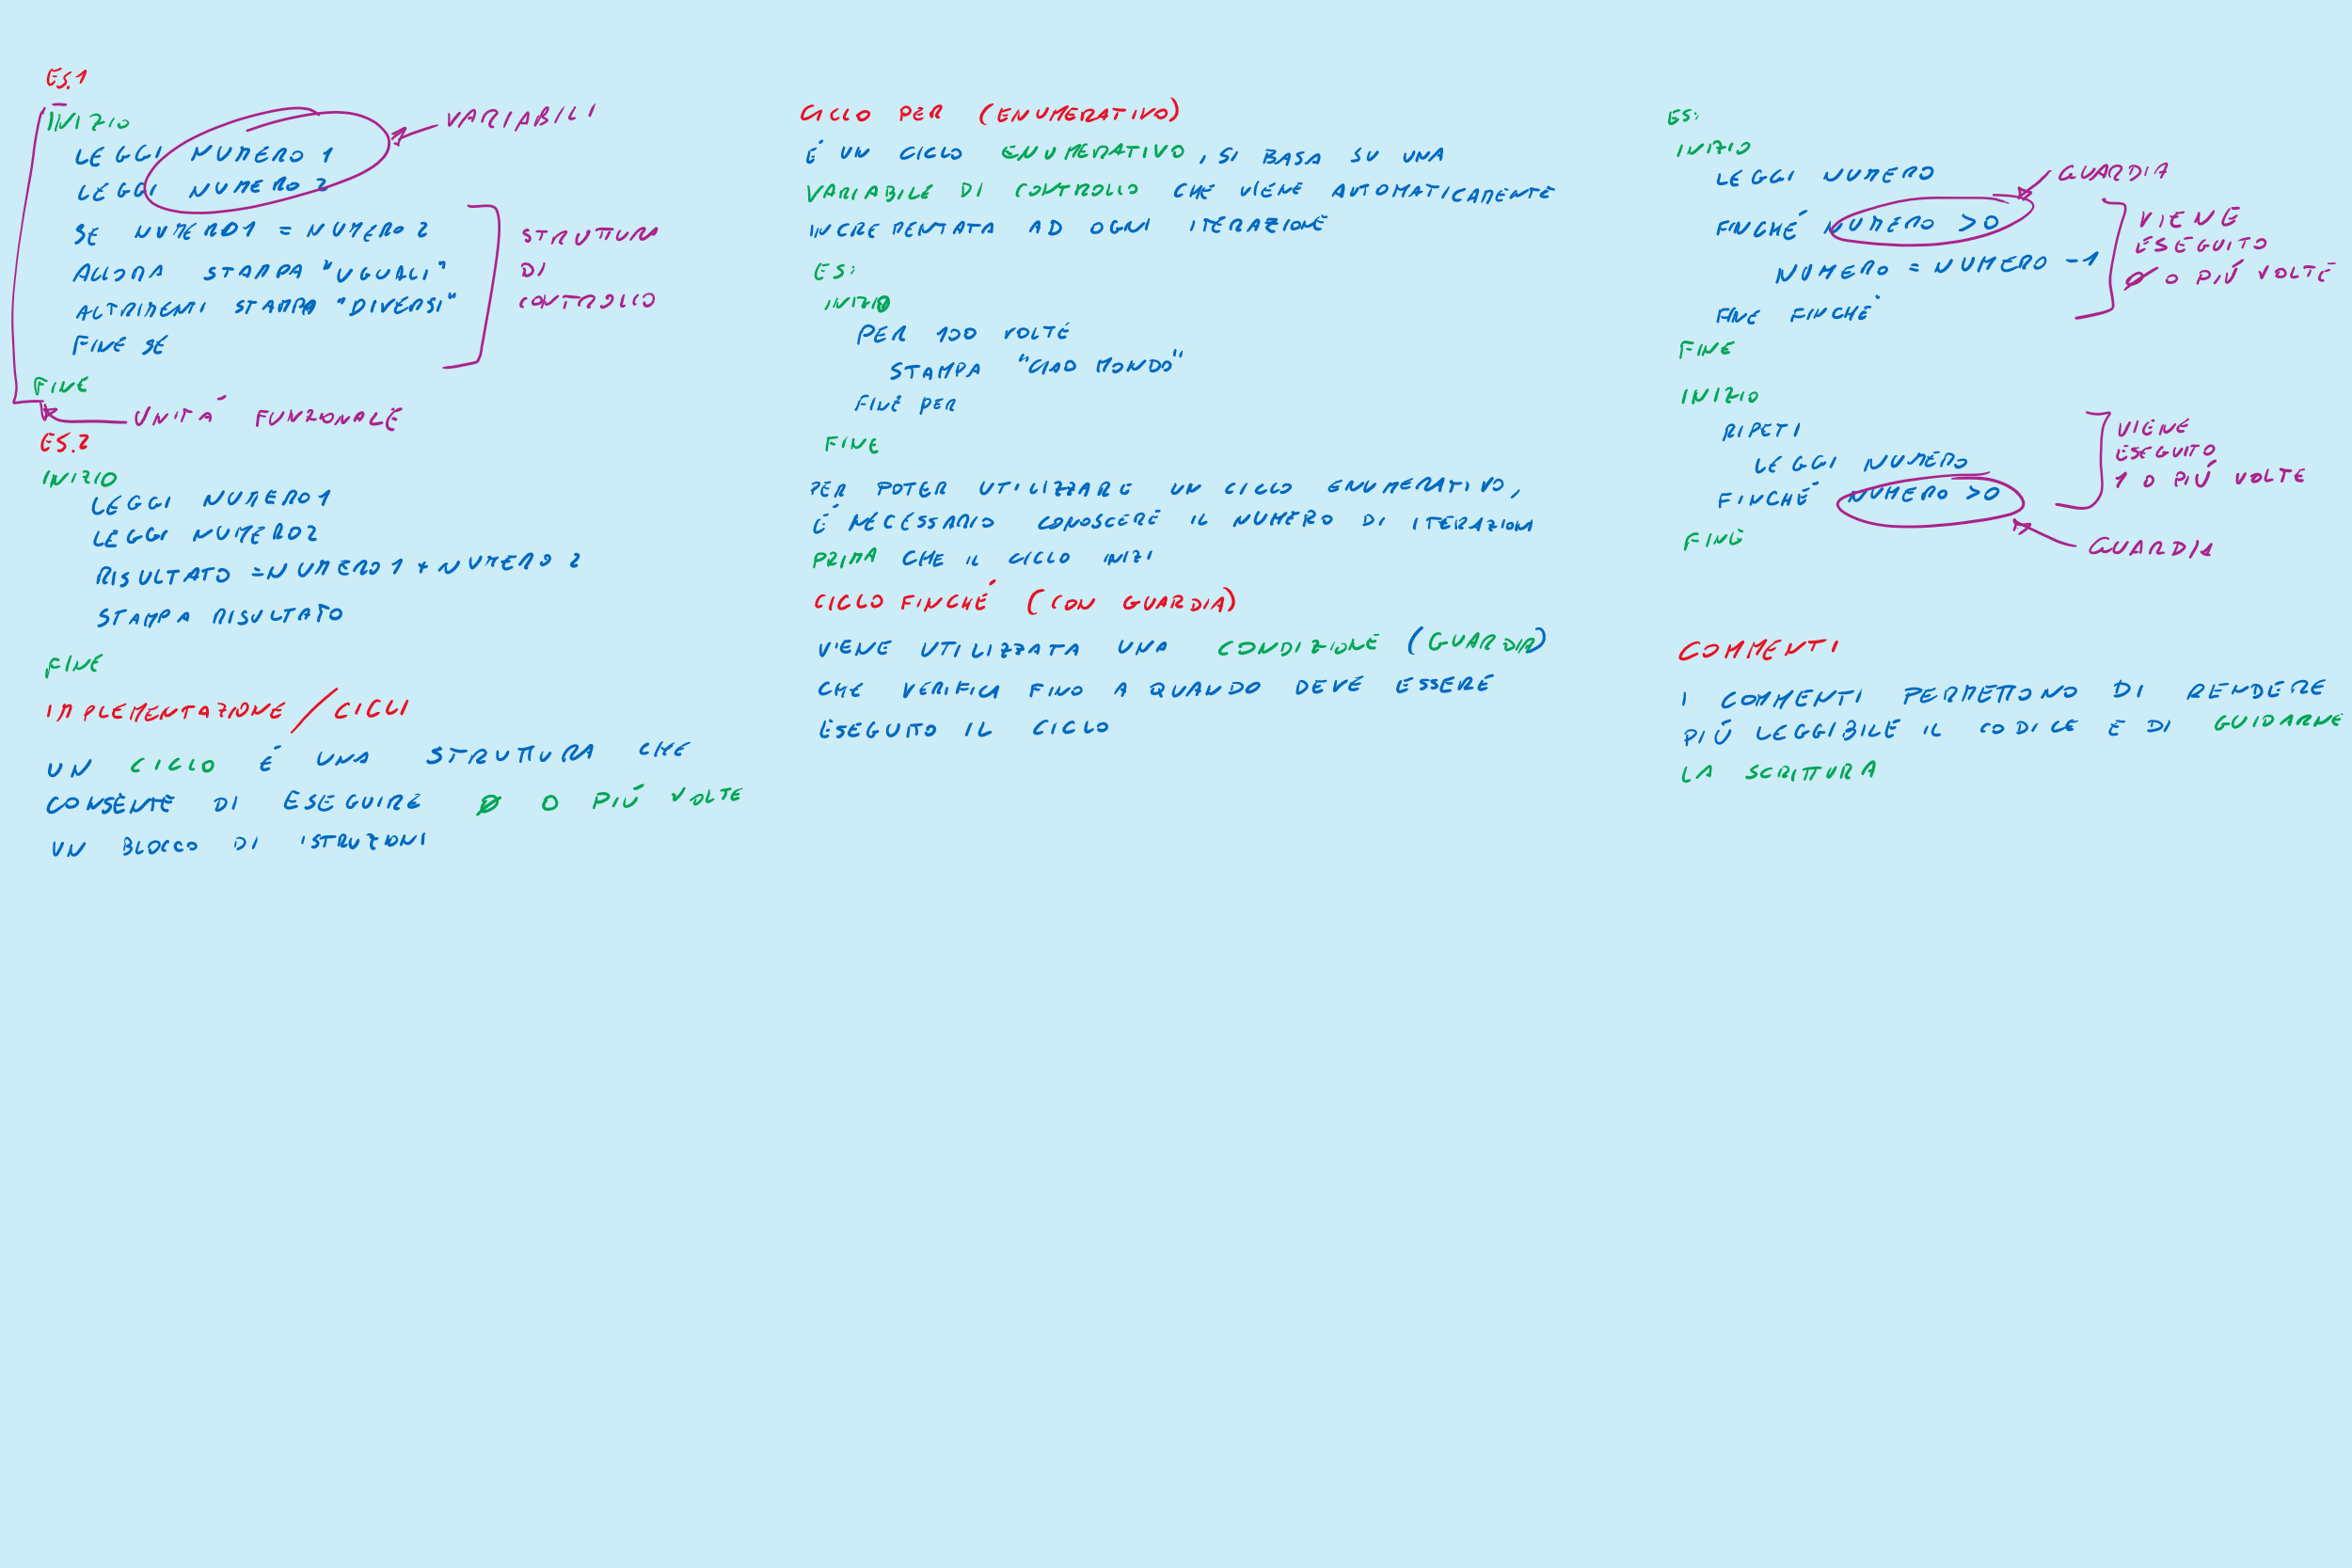 ES.1
INIZIO
VARIABILI
LEGGI NUMERO 1
LEGGI NUMERO 2
SE NUMERO1 = NUMERO 2
ALLORA STAMPA "UGUALI"
ALTRIMENTI STAMPA "DIVERSI"
FINE SE
STRUTTURA
DI
CONTROLLO
FINE
UNITÁ FUNZIONALE
ES.2
INIZIO
LEGGI NUMERO1
LEGGI NUMERO2
RISULTATO = NUMERO1 + NUMERO 2
STAMPA RISULTATO
FINE
IMPLEMENTAZIONE / CICLI
UN CICLO É UNA STRUTTURA CHE
CONSENTE DI ESEGUIRE Ø O PIÚ VOLTE
UN BLOCCO DI ISTRUZIONI
CICLO PER (ENUMERATIVO)
É UN CICLO ENUMERATIVO, SI BASA SU UNA
VARIABILE DI CONTROLLO CHE VIENE AUTOMATICAMENTE
INCREMENTATA AD OGNI ITERAZIONE
ES:
INIZIO
PER 100 VOLTE
STAMPA "CIAO MONDO"
FINE PER
FINE
PER POTER UTILIZZARE UN CICLO ENUMERATIVO,
É NECESSARIO CONOSCERE IL NUMERO DI ITERAZIONI
PRIMA CHE IL CICLO INIZI
CICLO FINCHÉ (CON GUARDIA)
VIENE UTILIZZATA UNA CONDIZIONE (GUARDIA)
CHE VERIFICA FINO A QUANDO DEVE ESSERE
ESEGUITO IL CICLO
ES:
INIZIO
LEGGI NUMERO
GUARDIA
FINCHÉ NUMERO >0
NUMERO = NUMERO -1
FINE FINCHÉ
VIENE
ESEGUITO
Ø O PIÚ VOLTE
FINE
INIZIO
RIPETI
LEGGI NUMERO
FINCHÉ NUMERO >0
VIENE
ESEGUITO
1 O PIÚ VOLTE
FINE
GUARDIA
COMMENTI
I COMMENTI PERMETTONO DI RENDERE
PIÚ LEGGIBILE IL CODICE E DI GUIDARNE
LA SCRITTURA